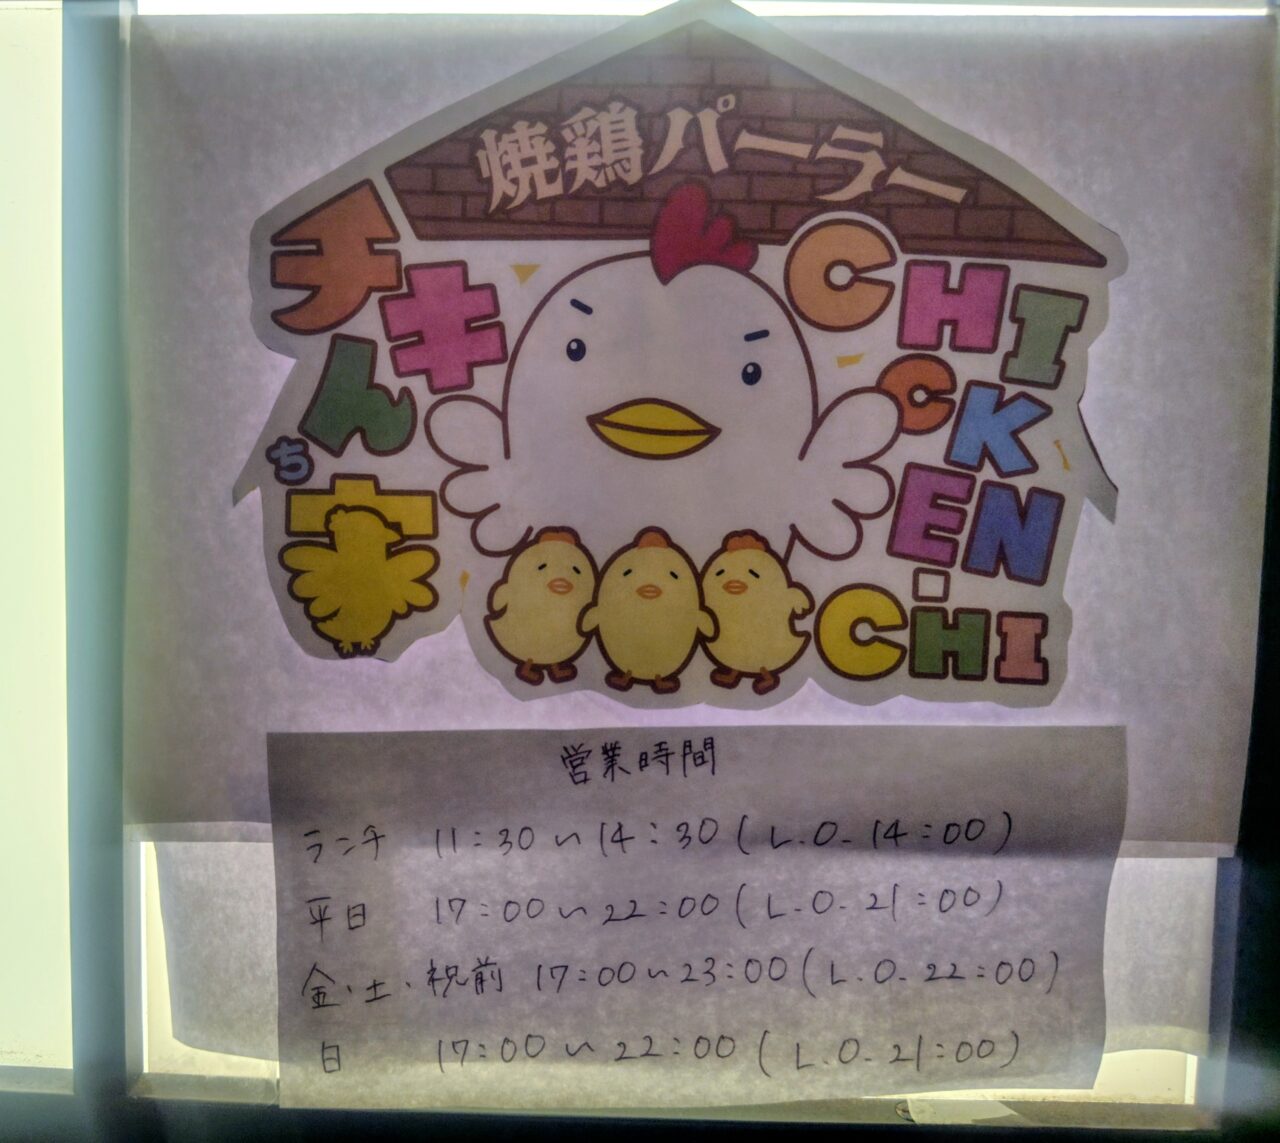 焼鶏パーラー
チキん家
ち
CHICKEN.CHI
営業時間
ランチ 11:30〜14:30(L.O. 14:00)
平日 17:00〜22:00(L.O. 21:00)
金・土・祝前 17:00〜23:00(L.O. 22:00)
日 17:00〜22:00(L.O. 21:00)